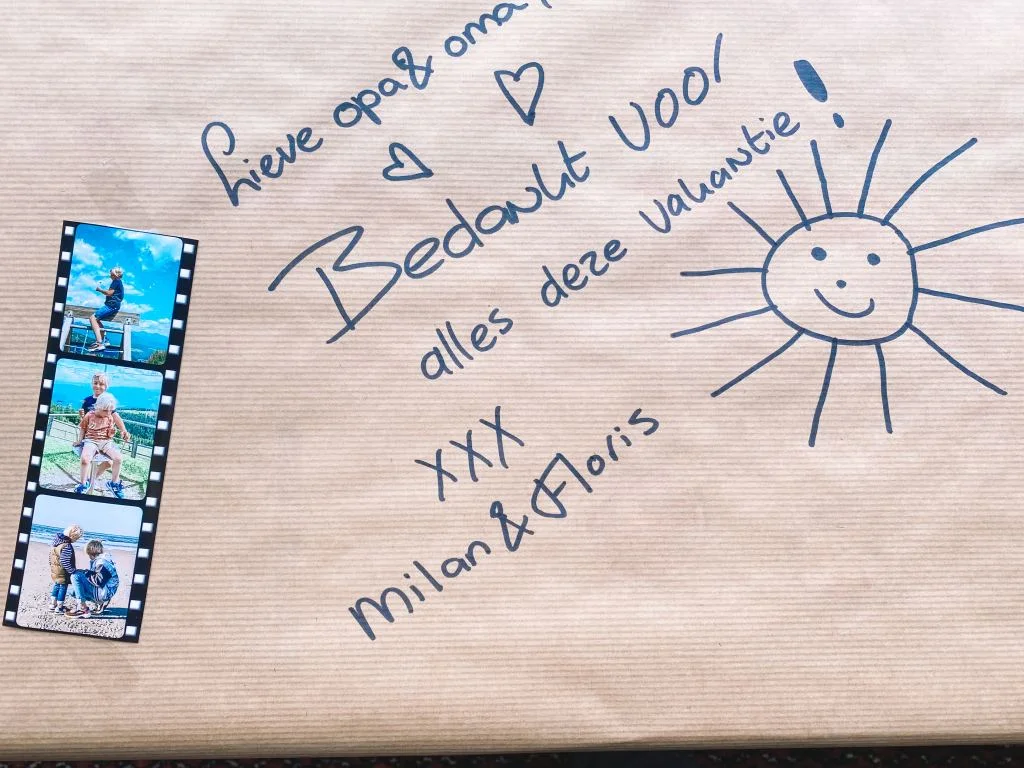 Lieve opa & oma,
Bedankt voor
alles deze vakantie!
xxx
Milan & Floris